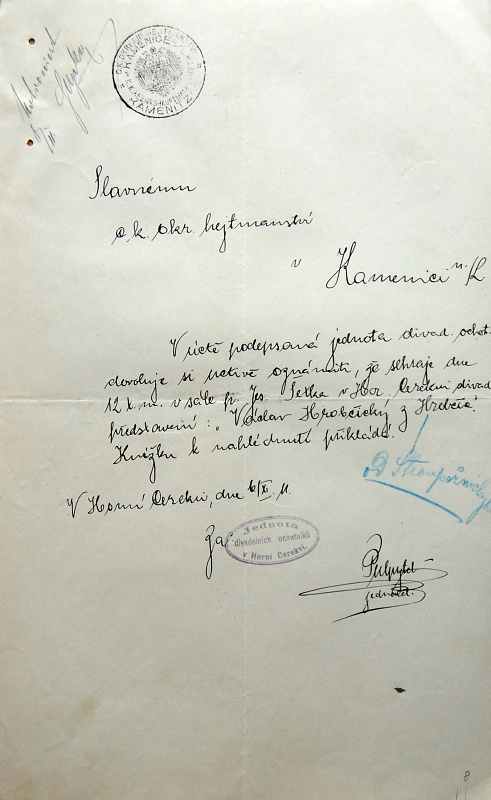 KAMENICE
KAMENITZ
Slavnému
c. k. okr. hejtmanství
v Kamenici n./L
V úctě podepsaná jednota divad. ochot.
dovoluje si uctivě oznámiti, že sehraje dne
12 t. m. v sále p. Jos. v Hor. Cerekvi divad
představení: „Václav Hrobčický z Hrobčic“.
Knížku k nahlédnutí přikládá.
V Horní Cerekvi, dne 6/XI. 11.
Za
Jednota
divadelních ochotníků
v Horní Cerekvi.
jednatel.
8